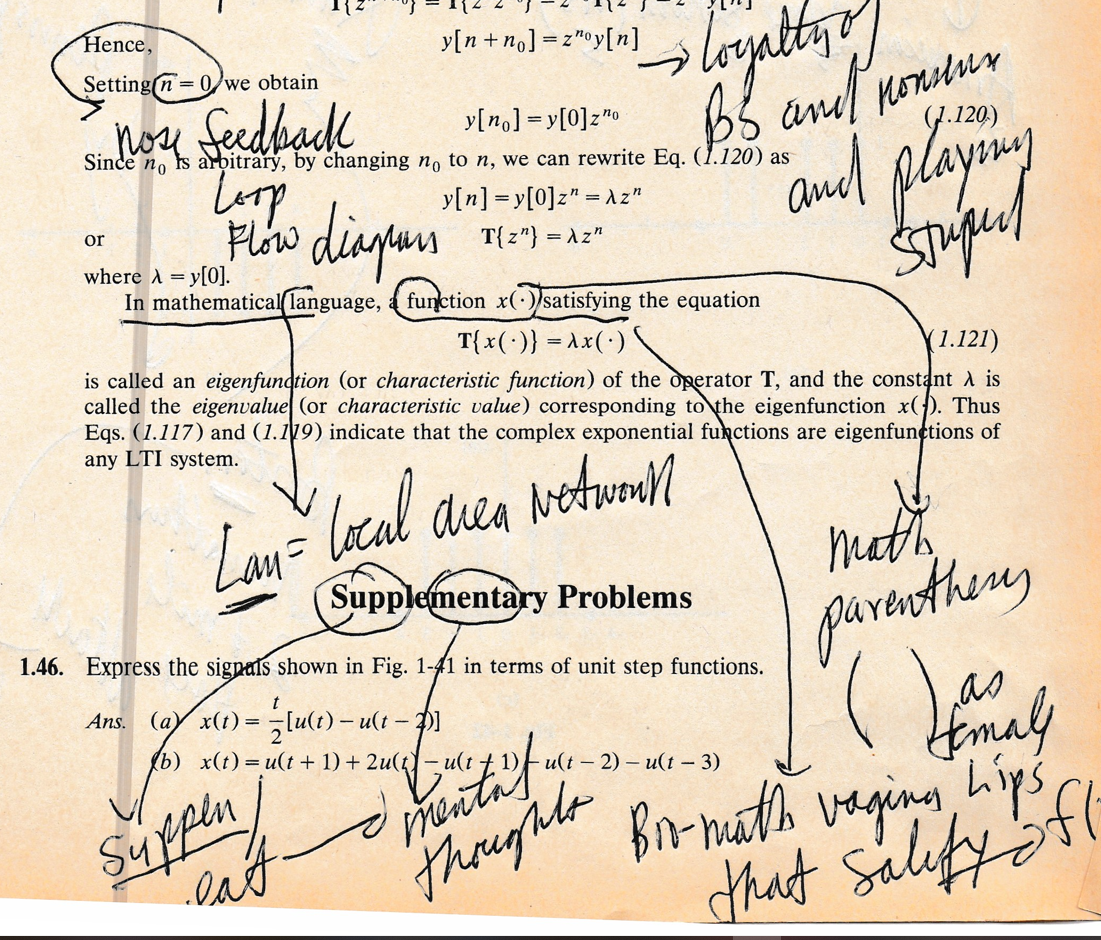 y[n + n₀] = zⁿ⁰y[n]
Hence,
→ Loyalty of
BS and nonsense
and playing
stuped
Setting n = 0, we obtain
y[n₀] = y[0]zⁿ⁰ (1.120)
nose feedback
Loop
Flow diagram
Since n₀ is arbitrary, by changing n₀ to n, we can rewrite Eq. (1.120) as
y[n] = y[0]zⁿ = λzⁿ
or T{zⁿ} = λzⁿ
where λ = y[0].
In mathematical language, a function x(·) satisfying the equation
T{x(·)} = λx(·) (1.121)
is called an eigenfunction (or characteristic function) of the operator T, and the constant λ is
called the eigenvalue (or characteristic value) corresponding to the eigenfunction x(·). Thus
Eqs. (1.117) and (1.119) indicate that the complex exponential functions are eigenfunctions of
any LTI system.
Lan = local area Network
math
parenthesis
( ) as
female
Supplementary Problems
1.46. Express the signals shown in Fig. 1-41 in terms of unit step functions.
Ans. (a) x(t) = t/2[u(t) − u(t − 2)]
(b) x(t) = u(t + 1) + 2u(t) − u(t − 1) − u(t − 2) − u(t − 3)
Supper/
eat → mental
thoughts
Bio-math vagina Lips
that satisfy → f(